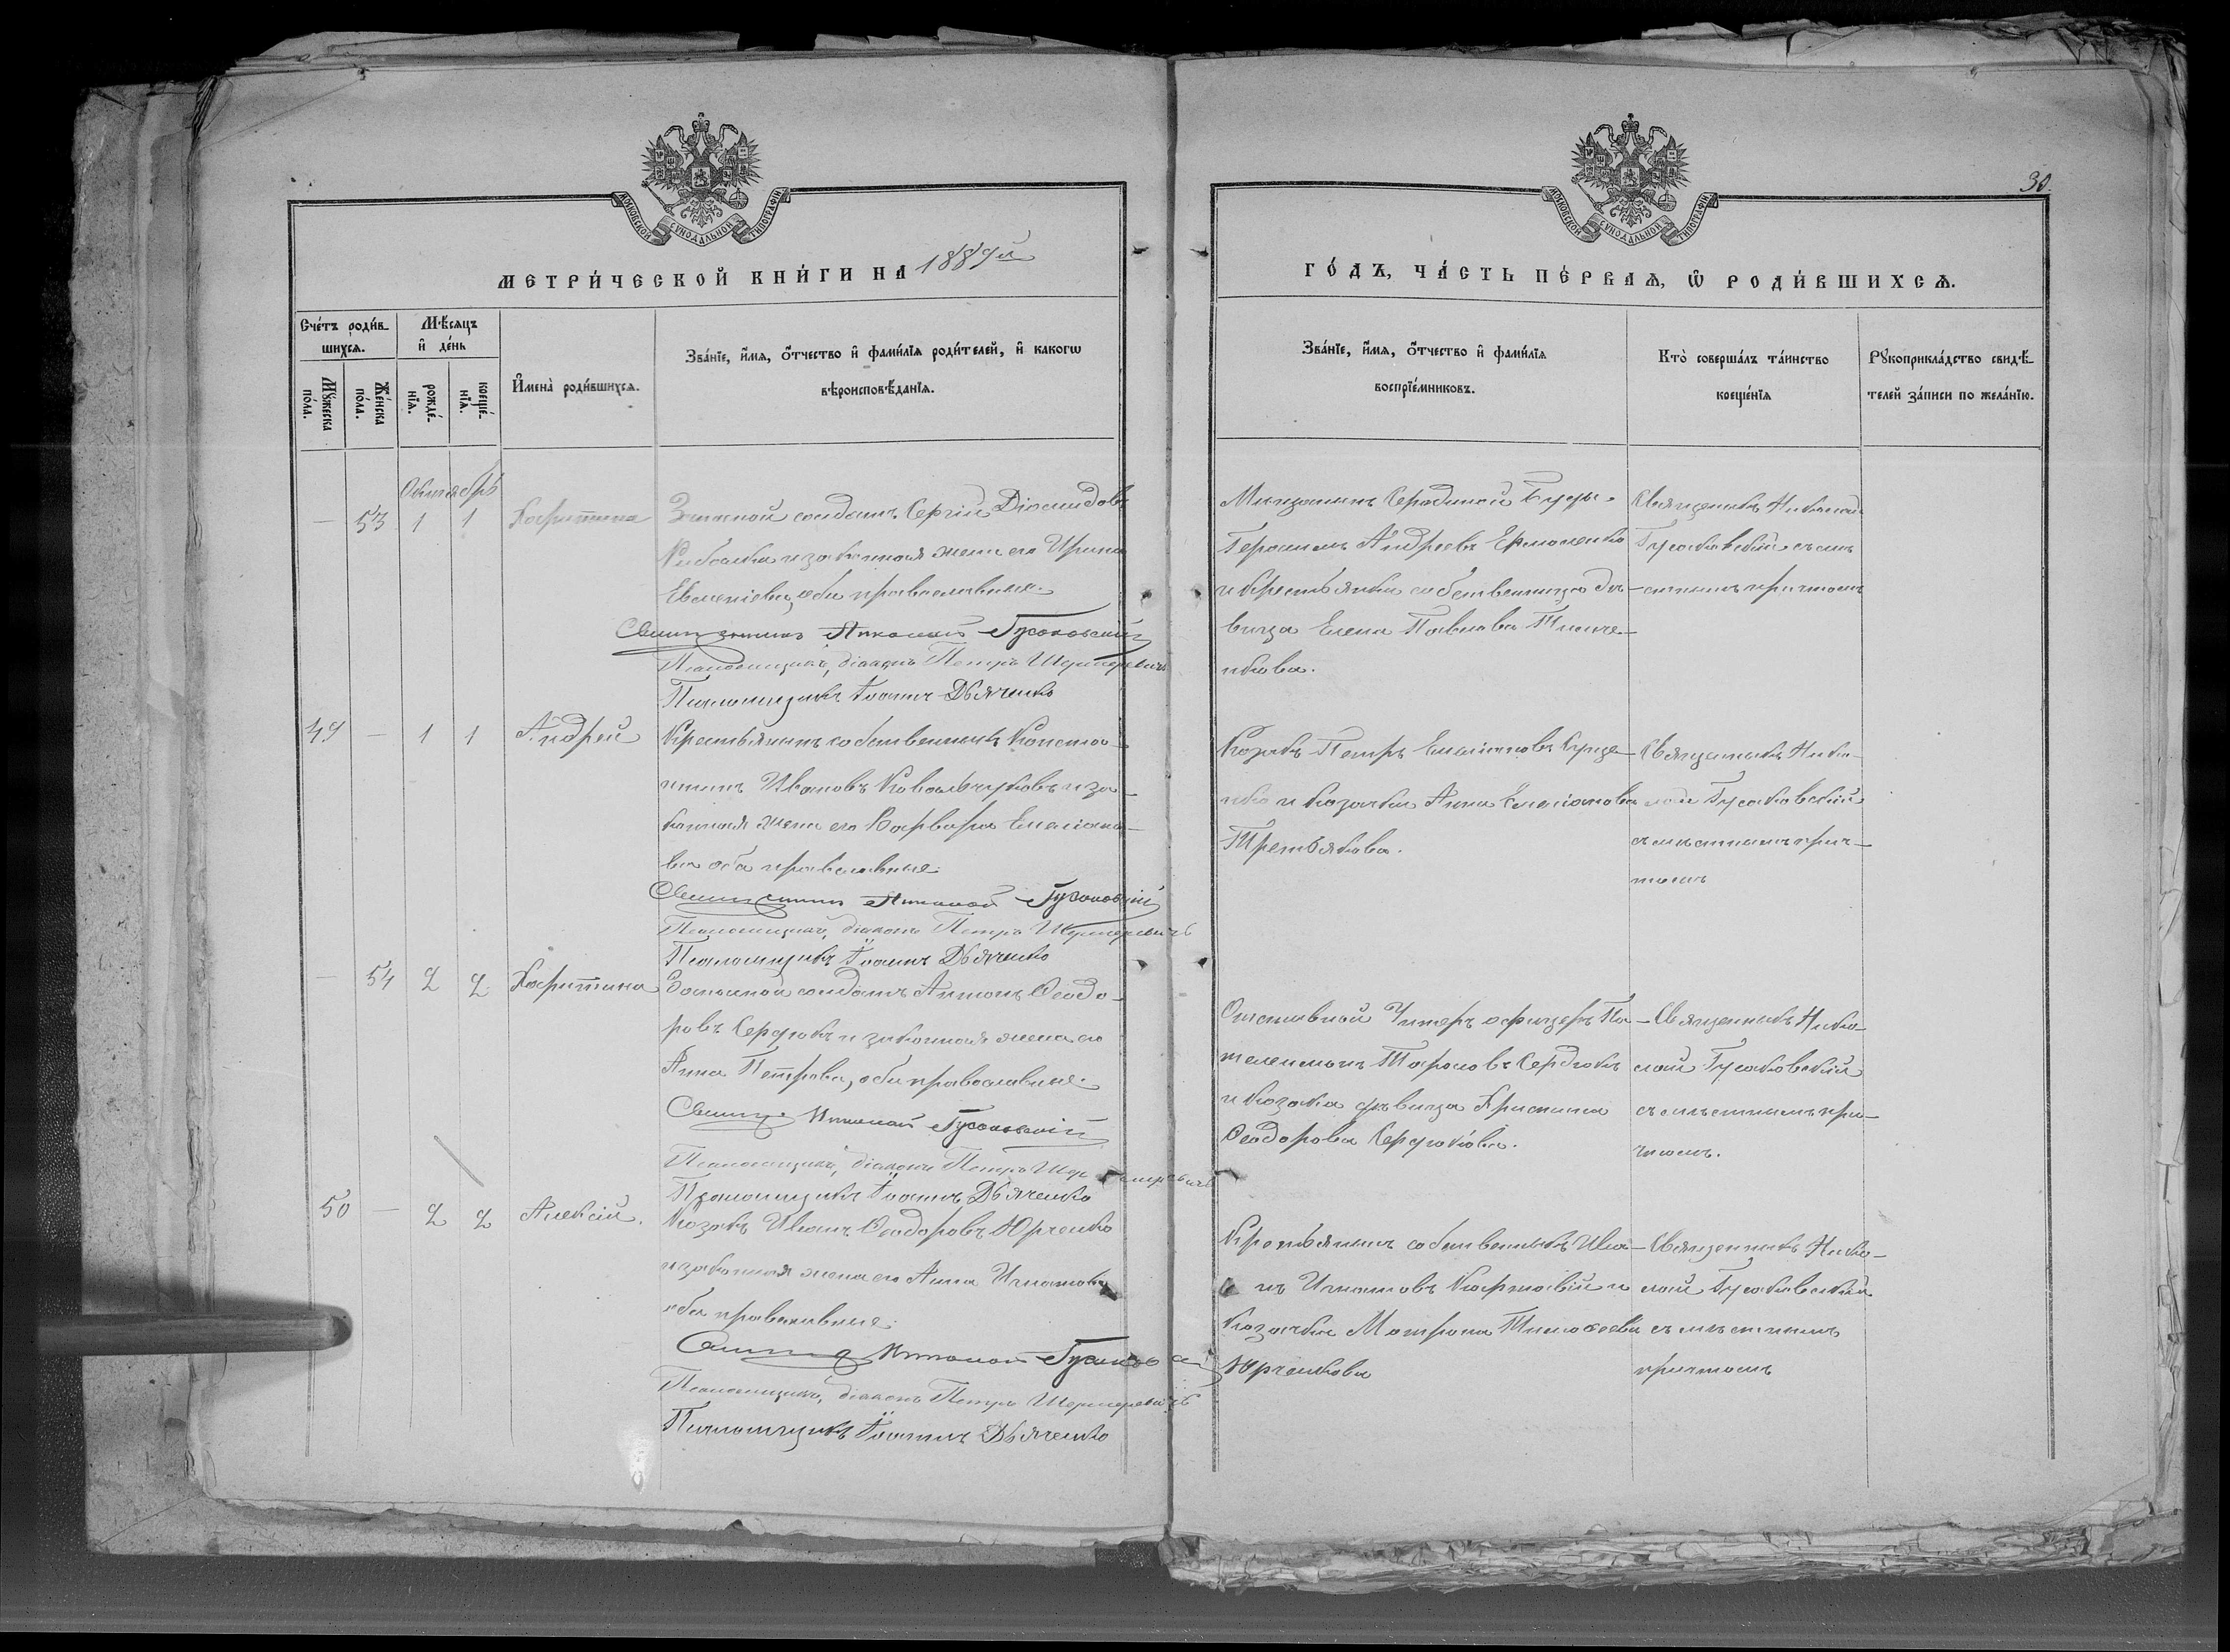 30.
МОСКОВСКОЙ СѴНОДАЛЬНОЙ ТИПОГРАФІИ
МЕТРИ́ЧЕСКОЙ КНИ́ГИ НА 1889й
Сче́тъ роди́в-
шихсѧ.
Мѣ́сѧцъ
и҆ де́нь
Мꙋ́жеска
по́ла.
Же́нска
по́ла.
рожде́-
нїѧ.
креще́-
нїѧ.
И҆мена̀ роди́вшихсѧ.
Зва́нїе, и҆́мѧ, ѻ҆́тчество и҆ фами́лїѧ роди́телей, и҆ како́гѡ
вѣроисповѣ́данїѧ.
Октябрь
— 53 1 1 Харитина
Запасной солдатъ Сергій Діомидовъ
и законная жена его Ирина
Евменіева, оба православные.
Священникъ Николай Гусаковскій
Псаломщикъ, діаконъ Петръ
Псаломщикъ Іоаннъ Дьяченко
49 — 1 1 Андрей
Крестьянинъ собственникъ Конста-
нтинъ Ивановъ Ковальчуковъ и за-
конная жена его Варвара Емеліано-
ва оба православные.
Священникъ Николай Гусаковскій
Псаломщикъ, діаконъ Петръ
Псаломщикъ Іоаннъ Дьяченко
— 54 2 2 Харитина
Запасной солдатъ Антонъ Ѳеодо-
ровъ Сердюкъ и законная жена его
Анна Петрова, оба православные.
Священ. Николай Гусаковскій
Псаломщикъ, діаконъ Петръ
Псаломщикъ Іоаннъ Дьяченко
50 — 2 2 Алексій.
Козакъ Иванъ Ѳеодоровъ Юрченко
и законная жена его Анна Игнатова
оба православные.
Священ. Николай Гусаковскій
Псаломщикъ, діаконъ Петръ
Псаломщикъ Іоаннъ Дьяченко
МОСКОВСКОЙ СѴНОДАЛЬНОЙ ТИПОГРАФІИ
ГО́ДЪ, ЧА́СТЬ ПЕ́РВАѦ, Ѡ҆ РОДИ́ВШИХСѦ.
Зва́нїе, и҆́мѧ, ѻ҆́тчество и҆ фами́лїѧ
воспрїе́мниковъ.
Кто̀ соверша́лъ та́инство
креще́нїѧ
Рꙋкоприкла́дство свидѣ́-
телей за́писи по жела́нїю.
Мѣщанинъ Серединой Буды
Герасимъ Андреевъ Ермоленко
и крестьянки собственницы дѣ-
вица Елена Павлова Тимче-
нкова.
Священникъ Николай
Гусаковскій съ мѣ-
стнымъ причтомъ
Козакъ Петръ Емеліановъ Куце-
нко и козачка Анна Емеліанова
Третьякова.
Священникъ Нико-
лай Гусаковскій
съ мѣстнымъ прич-
томъ
Отставной Унтеръ офицеръ Па-
нтелеимонъ Тарасовъ Сердюкъ
и козачка дѣвица Христина
Ѳеодорова Сердюкова.
Священникъ Нико-
лай Гусаковскій
съ мѣстнымъ при-
чтомъ.
Крестьянинъ собственникъ Ива-
нъ Игнатовъ Картавій и
козачка Матрона Тимоѳеева
Юрченкова
Священникъ Нико-
лай Гусаковскій
съ мѣстнымъ
причтомъ